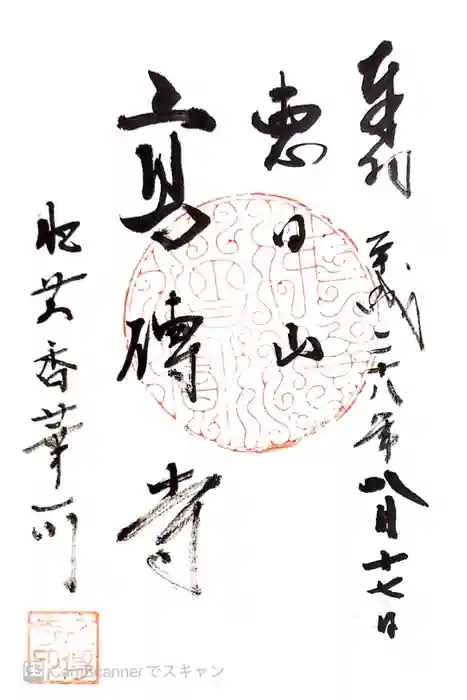 奉拝 平成二十八年八月十七日
恵日山
高傳寺
香華所
CamScannerでスキャン